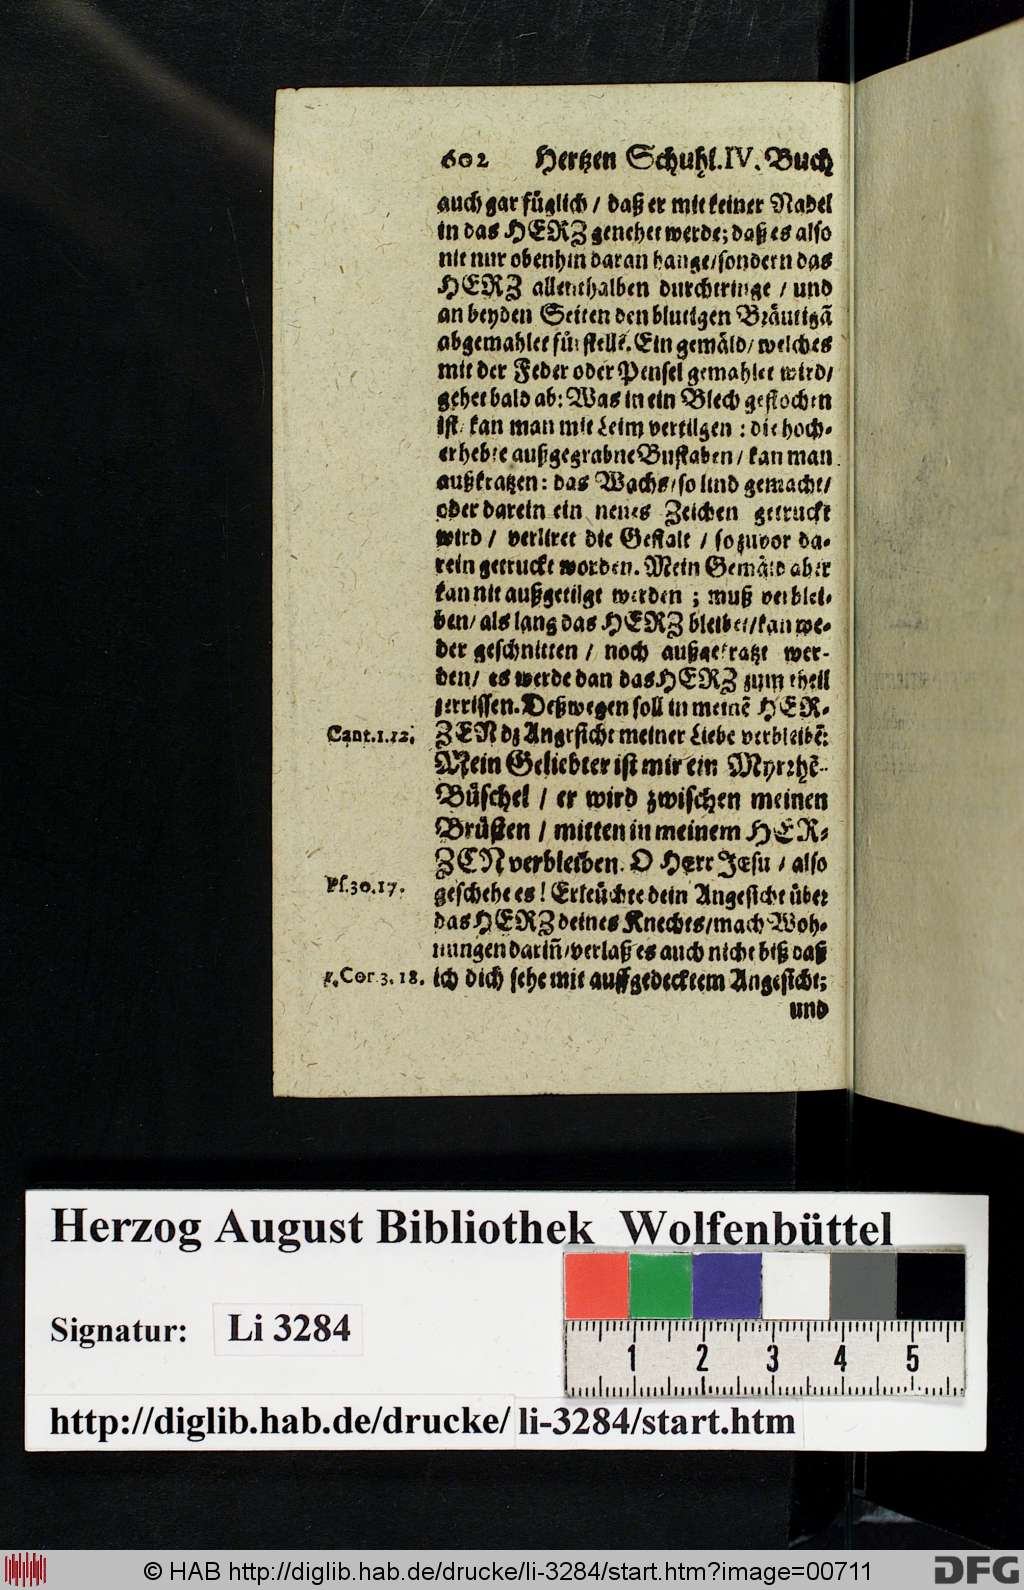 602 Hertzen Schuhl. IV. Buch
auch gar füglich / daß er mit keiner Nadel
in das HERZ genehet werde; daß es also
nit nur obenhin daran hange / sondern das
HERZ allenthalben durchtringe / und
an beyden Seiten den blutigen Bräutigã
abgemahlet fürstelle. Ein gemäld / welches
mit der Feder oder Pensel gemahlet wird /
gehet bald ab: Was in ein Blech gestochen
ist / kan man mit Leim vertilgen : die hoch-
erhebte außgegrabne Bustaben / kan man
außkratzen: das Wachs / so lind gemacht /
oder darein ein neues Zeichen getruckt
wird / verliret die Gestalt / so zuvor da-
rein getruckt worden. Mein Gemäld aber
kan nit außgetilgt werden ; muß verblei-
ben / als lang das HERZ bleibet / kan we-
der geschnitten / noch außgekratzt wer-
den / es werde dan das HERZ zum theil
zerrissen. Deßwegen soll in meinẽ HER-
Cant. 1. 12. ZEN dz Angesicht meiner Liebe verbleibẽ:
Mein Geliebter ist mir ein Myrrhẽ-
Büschel / er wird zwischen meinen
Brüsten / mitten in meinem HER-
ZEN verbleiben. O Herr Jesu / also
Ps. 30. 17. geschehe es! Erleüchte dein Angesicht über
das HERZ deines Knechts / mach Woh-
nungen dariñ / verlaß es auch nicht biß daß
2. Cor. 3. 18. ich dich sehe mit auffgedecktem Angesicht;
und
Herzog August Bibliothek Wolfenbüttel
Signatur: Li 3284
1 2 3 4 5
http://diglib.hab.de/drucke/ li-3284/start.htm
© HAB http://diglib.hab.de/drucke/li-3284/start.htm?image=00711
DFG